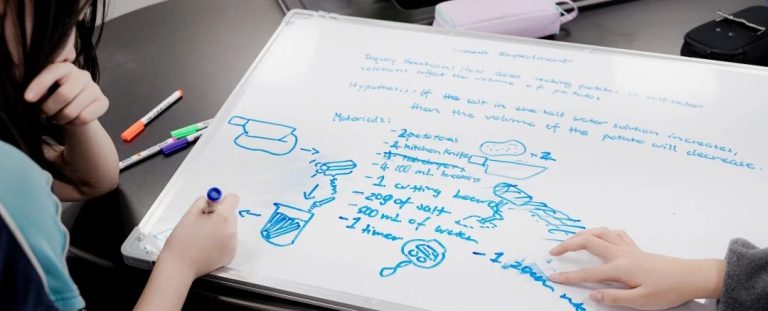 Experiment
Inquiry Question: How does soaking potatoes in salt water
solutions affect the volume of potatoes
Hypothesis: If the salt in the salt water solution increases,
then the volume of the potato will decrease.
Materials:
- 2 potatoes
x 2
- 1 kitchen knife
- 4 100 mL beakers
- 1 cutting board
- 20g of salt
- 800 mL of water
- 1 timer
- 1